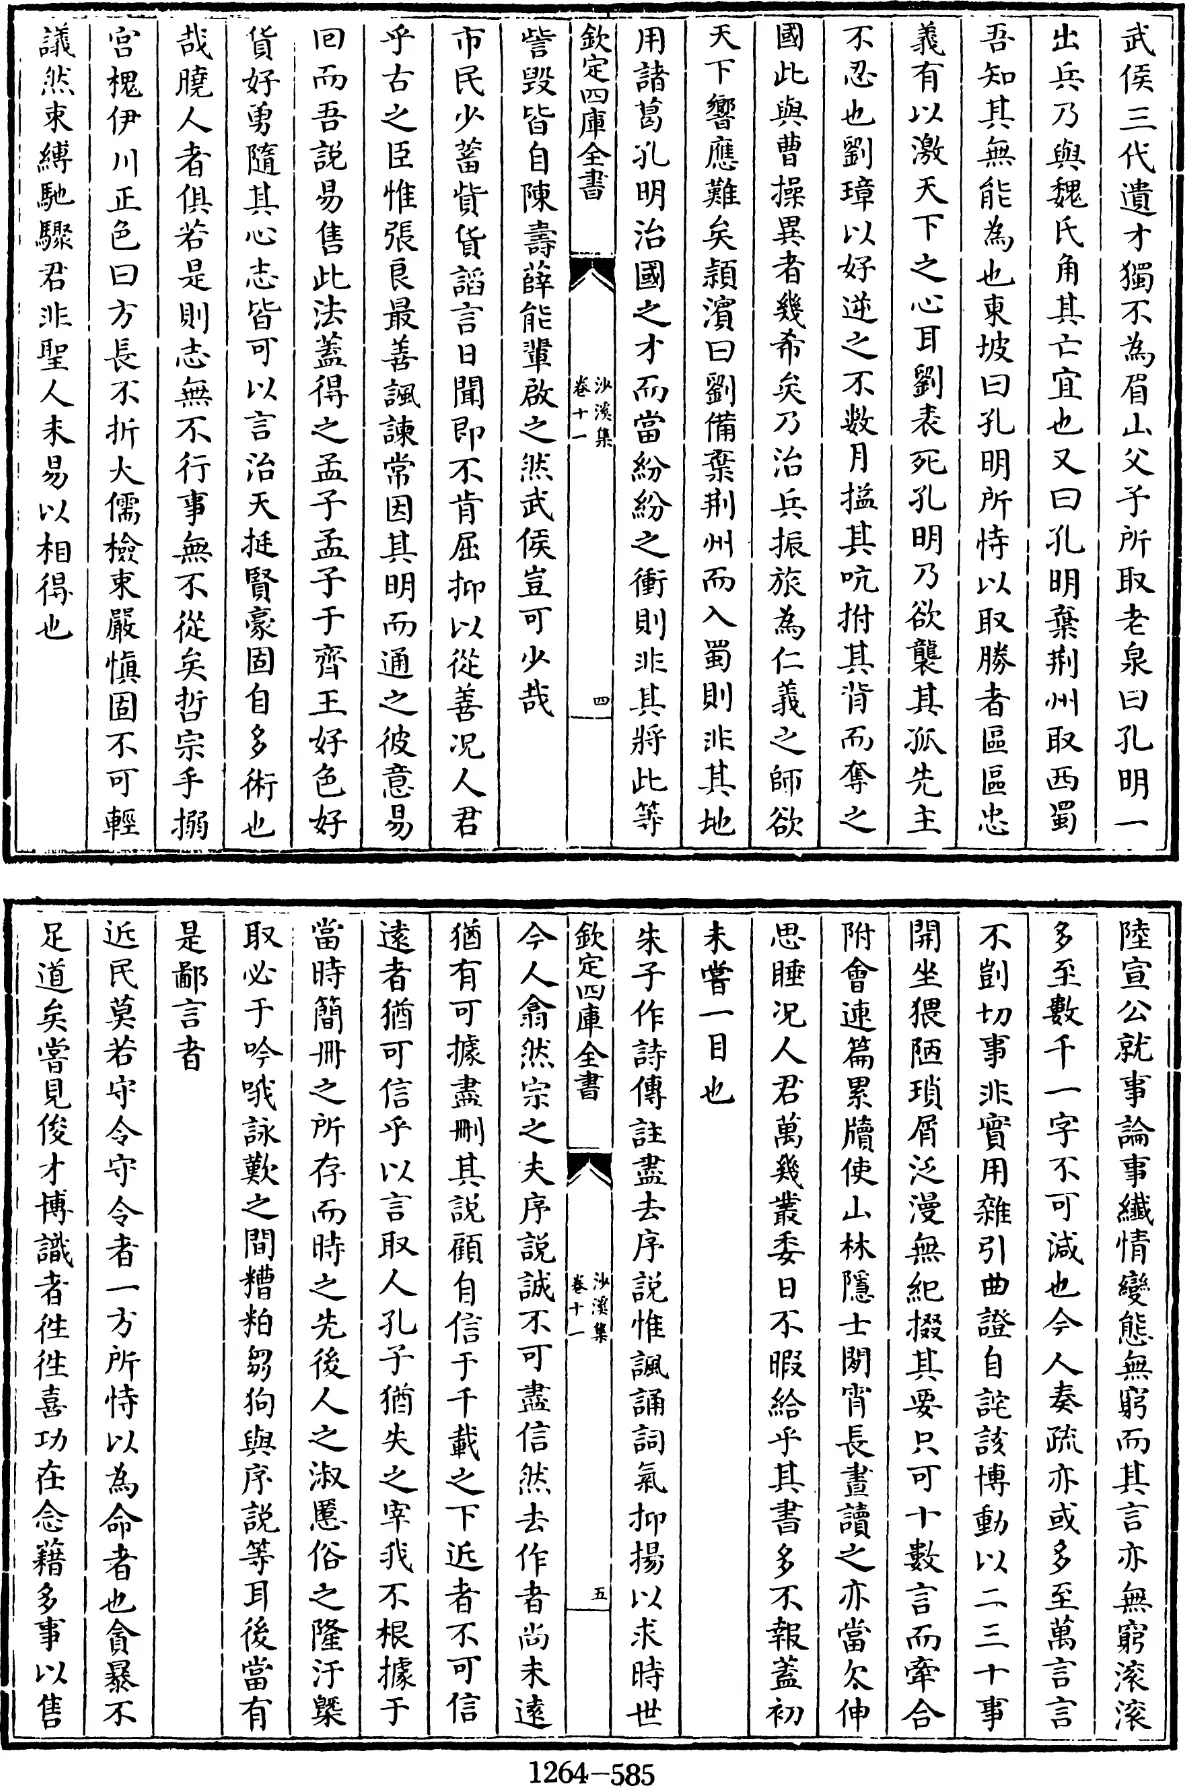 武侯三代遺才獨不為眉山父子所取老泉曰孔明一
出兵乃與魏氏角其亡宜也又曰孔明棄荆州取西蜀
吾知其無能為也東坡曰孔明所恃以取勝者區區忠
義有以激天下之心耳劉表死孔明乃欲襲其孤先主
不忍也劉璋以好逆之不數月搤其吭拊其背而奪之
國此與曹操異者幾希矣乃治兵振旅為仁義之師欲
天下響應難矣潁濱曰劉備棄荆州而入蜀則非其地
用諸葛孔明治國之才而當紛紛之衝則非其將此等
欽定四庫全書
沙溪集
卷十一
四
訾毀皆自陳壽薛能輩啟之然武侯豈可少哉
市民少蓄貲貨謟言日聞即不肯屈抑以從善况人君
乎古之臣惟張良最善諷諫常因其明而通之彼意易
囘而吾説易售此法蓋得之孟子孟子于齊王好色好
貨好勇隨其心志皆可以言治天挺賢豪固自多術也
哉曉人者俱若是則志無不行事無不從矣哲宗手搦
宫槐伊川正色曰方長不折大儒檢束嚴慎固不可輕
議然束縛馳驟君非聖人未易以相得也
陸宣公就事論事纎情變態無窮而其言亦無窮滚滚
多至數千一字不可減也今人奏疏亦或多至萬言言
不剴切事非實用雜引曲證自詫該博動以二三十事
開坐猥陋瑣屑泛漫無紀掇其要只可十數言而牽合
附會連篇累牘使山林隱士閒宵長晝讀之亦當欠伸
思睡况人君萬幾叢委日不暇給乎其書多不報蓋初
未嘗一目也
朱子作詩傳註盡去序説惟諷誦詞氣抑揚以求時世
欽定四庫全書
沙溪集
卷十一
五
今人翕然宗之夫序説誠不可盡信然去作者尚未遠
猶有可據盡刪其説顧自信于千載之下近者不可信
遠者猶可信乎以言取人孔子猶失之宰我不根據于
當時簡冊之所存而時之先後人之淑慝俗之隆汙槩
取必于吟哦詠歎之間糟粕芻狗與序説等耳後當有
是鄙言者
近民莫若守令守令者一方所恃以為命者也貪暴不
足道矣嘗見俊才博識者徃徃喜功在念藉多事以售
1264-585